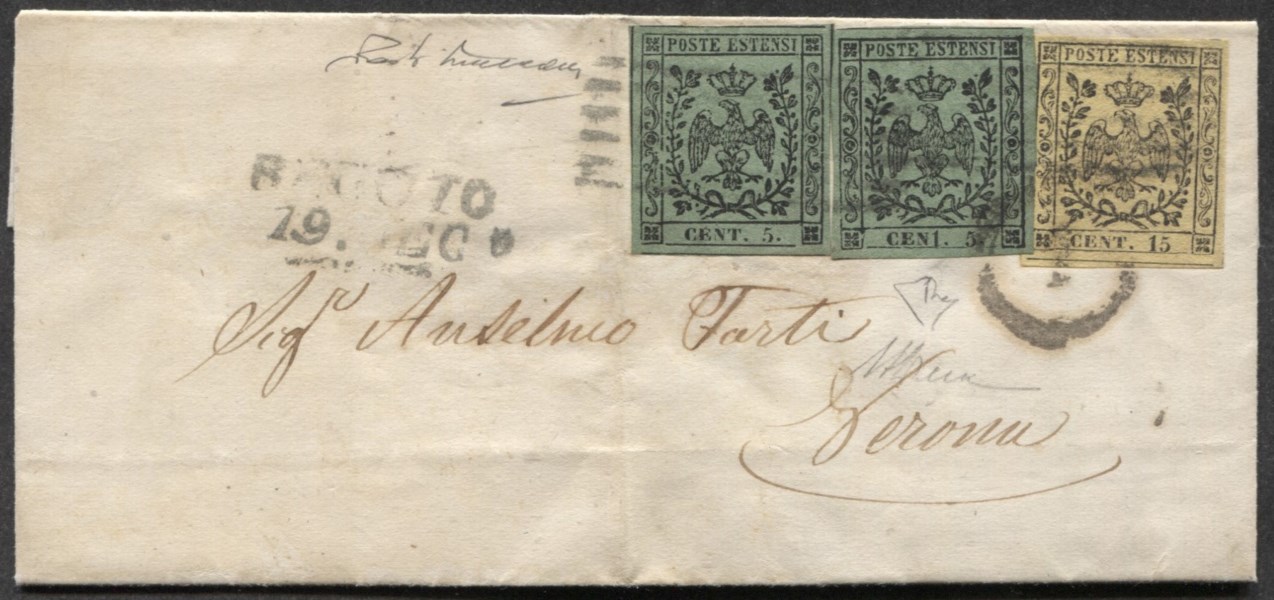 POSTE ESTENSI
CENT. 5.
POSTE ESTENSI
CEN1. 5.
POSTE ESTENSI
CENT. 15
19.
Sigr Anselmo Forti
Verona